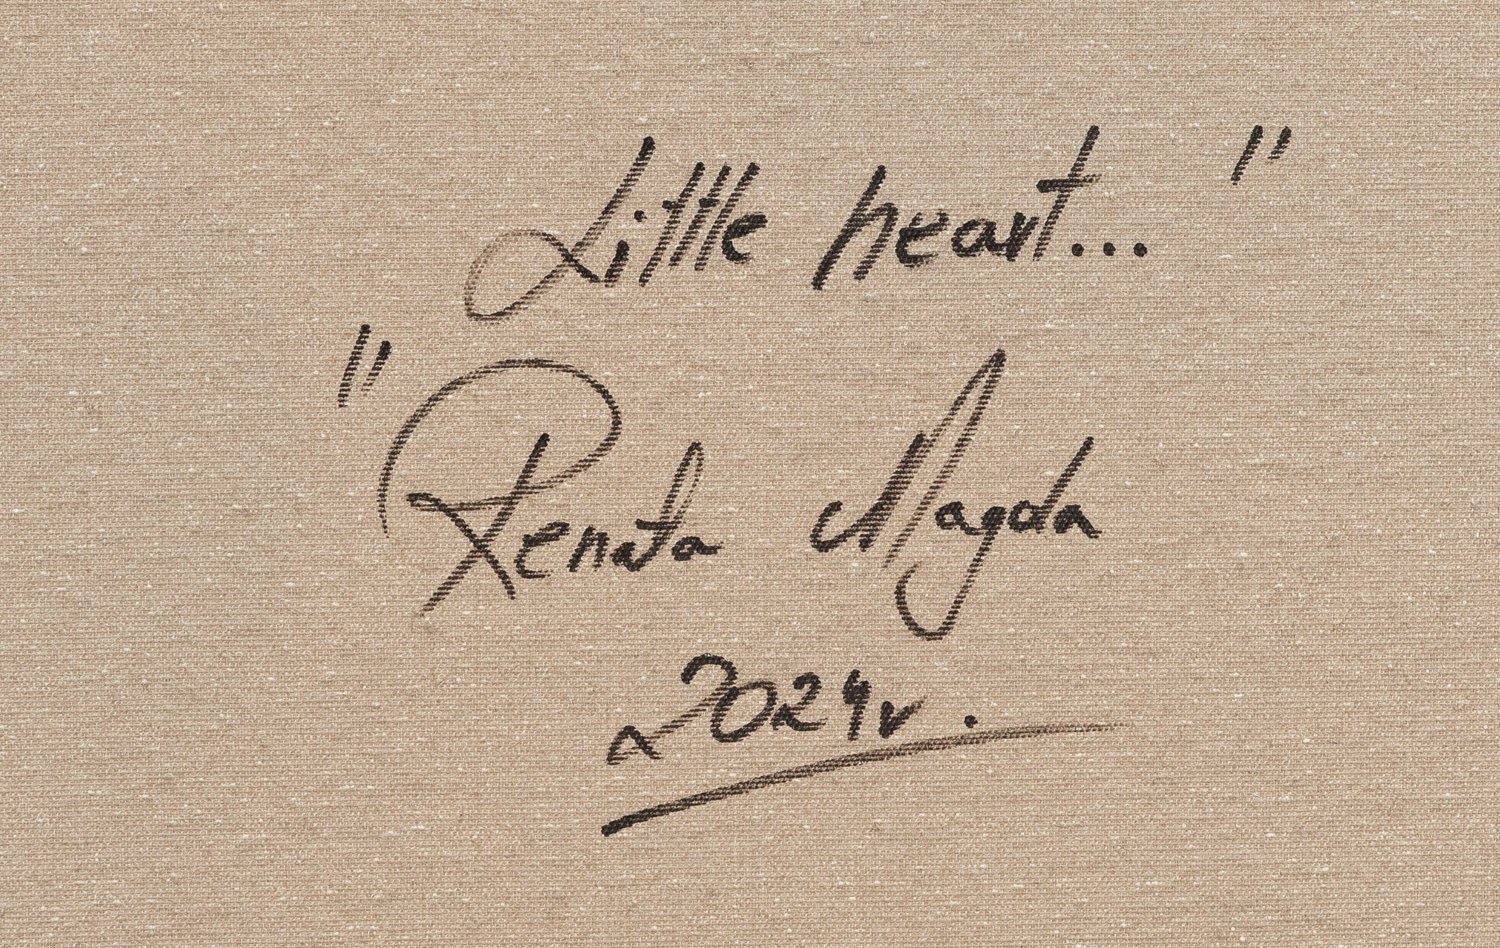 Little heart... "
" Renata Magda
2024r.